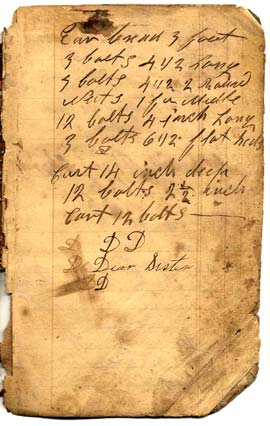 Ear bread 3 feet
3 bolts 4 1/2 long
3 bolts 4 1/2 2 Round
Nuts 1 for Middle
12 bolts 4 inch Long
3 bolts 6 1/2 flat heds
Cart 14 inch deep
12 bolts 2 1/2 inch
Cart 12 bolts
D D
Dear Sister
D